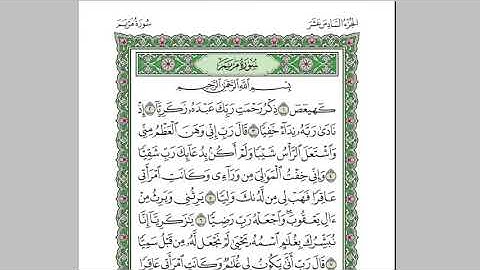 سُورَةُ مَرْيَمَ الجُزْءُ السَّادِسَ عَشَرَ
سُورَةُ مَرْيَمَ
بِسْمِ اللَّهِ الرَّحْمَٰنِ الرَّحِيمِ
كٓهيعٓصٓ ١ ذِكْرُ رَحْمَتِ رَبِّكَ عَبْدَهُۥ زَكَرِيَّآ ٢ إِذْ
نَادَىٰ رَبَّهُۥ نِدَآءً خَفِيًّا ٣ قَالَ رَبِّ إِنِّي وَهَنَ ٱلْعَظْمُ مِنِّي
وَٱشْتَعَلَ ٱلرَّأْسُ شَيْبًا وَلَمْ أَكُنۢ بِدُعَآئِكَ رَبِّ شَقِيًّا
٤ وَإِنِّي خِفْتُ ٱلْمَوَٰلِيَ مِن وَرَآءِي وَكَانَتِ ٱمْرَأَتِي
عَاقِرًا فَهَبْ لِي مِن لَّدُنكَ وَلِيًّا ٥ يَرِثُنِي وَيَرِثُ مِنْ
ءَالِ يَعْقُوبَ وَٱجْعَلْهُ رَبِّ رَضِيًّا ٦ يَٰزَكَرِيَّآ إِنَّا
نُبَشِّرُكَ بِغُلَٰمٍ ٱسْمُهُۥ يَحْيَىٰ لَمْ نَجْعَل لَّهُۥ مِن قَبْلُ سَمِيًّا
٧ قَالَ رَبِّ أَنَّىٰ يَكُونُ لِي غُلَٰمٌ وَكَانَتِ ٱمْرَأَتِي عَاقِرًا